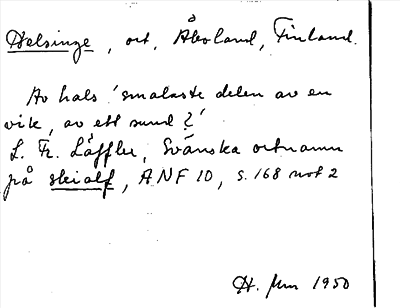 Helsinge, ort, Åboland, Finland.
Av hals 'smalaste delen av en
vik, av ett sund?'
L. Fr. Läffler, Svänska ortnamn
på skialf, ANF 10, s. 168 not 2
H. 1950